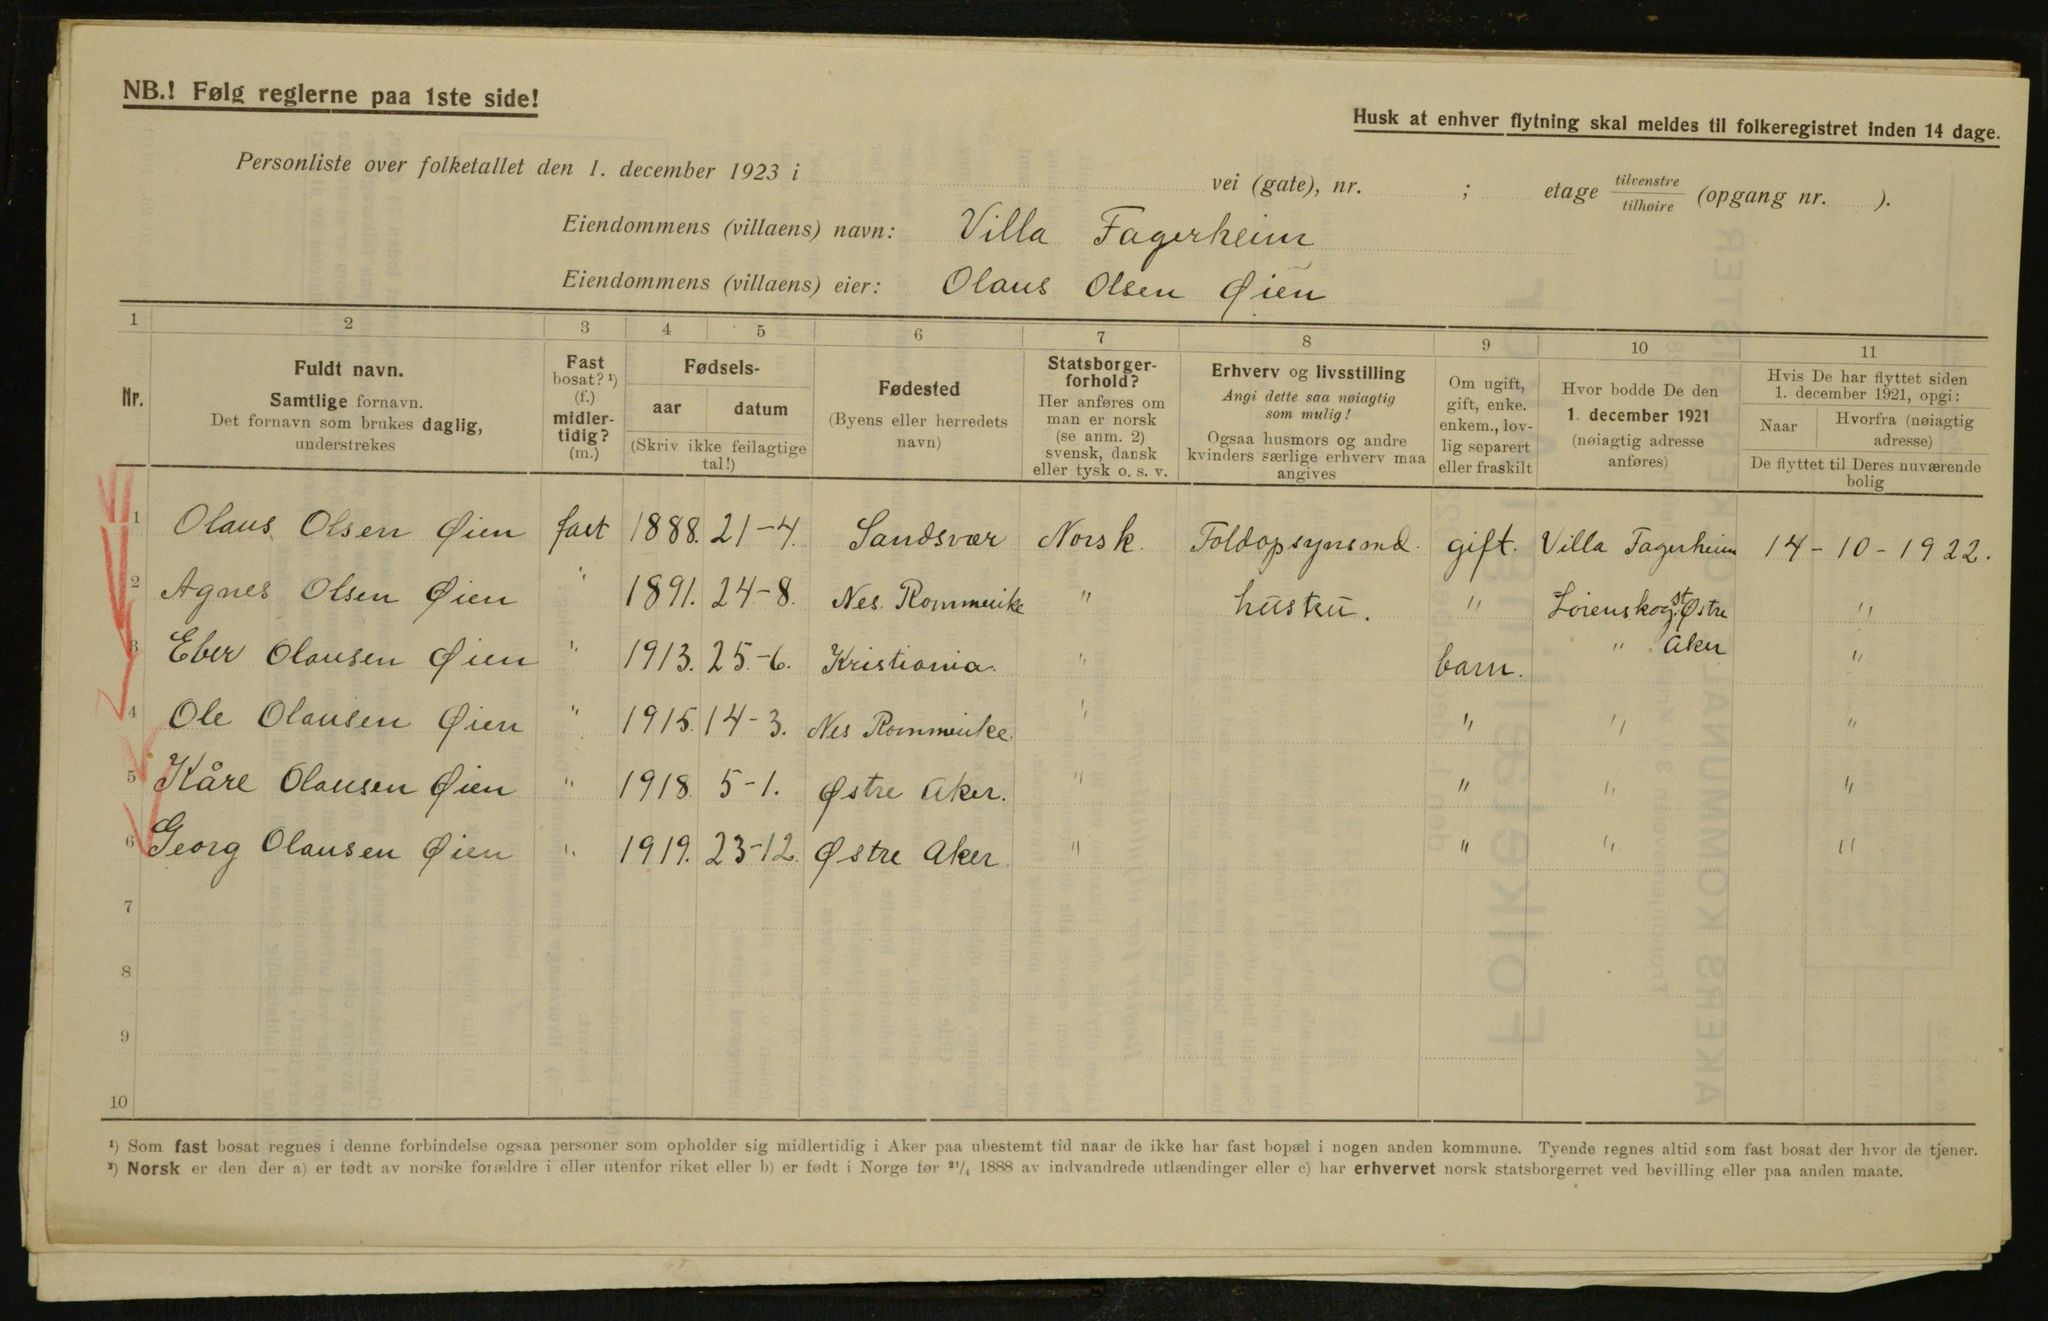 NB.! Følg reglerne paa 1ste side!
Husk at enhver flytning skal meldes til folkeregistret inden 14 dage.
Personliste over folketallet den 1. december 1923 i vei (gate), nr. ; etage tilvenstre/tilhøire (opgang nr. ).
Eiendommens (villaens) navn: Villa Fagerheim
Eiendommens (villaens) eier: Olaus Olsen Øien
1 2 3 4 5 6 7 8 9 10 11
Nr.
Fuldt navn.
Samtlige fornavn.
Det fornavn som brukes daglig,
understrekes
Fast
bosat? ¹)
(f.)
midler-
tidig?
(m.)
Fødsels-
aar datum
(Skriv ikke feilagtige
tal!)
Fødested
(Byens eller herredets
navn)
Statsborger-
forhold?
Her anføres om
man er norsk
(se anm. 2)
svensk, dansk
eller tysk o. s. v.
Erhverv og livsstilling
Angi dette saa nøiagtig
som mulig!
Ogsaa husmors og andre
kvinders særlige erhverv maa
angives
Om ugift,
gift, enke.
enkem., lov-
lig separert
eller fraskilt
Hvor bodde De den
1. december 1921
(nøiagtig adresse
anføres)
Hvis De har flyttet siden
1. december 1921, opgi:
Naar Hvorfra (nøiagtig
adresse)
De flyttet til Deres nuværende
bolig
1 Olaus Olsen Øien fast 1888. 21-4. Sandsvær Norsk. Toldopsynsmd. gift. Villa Fagerheim 14-10-1922.
2 Agnes Olsen Øien " 1891. 24-8. Nes. Rommerike " hustru. " Lørenskog st. Østre "
3 Eber Olausen Øien " 1913. 25-6. Kristiania. " barn. " Aker "
4 Ole Olausen Øien " 1915. 14-3. Nes Rommerike. " " " "
5 Kåre Olausen Øien " 1918. 5-1. Østre Aker. " " " "
6 Georg Olausen Øien " 1919. 23-12. Østre Aker. " " " "
7
8
9
10
¹) Som fast bosat regnes i denne forbindelse ogsaa personer som opholder sig midlertidig i Aker paa ubestemt tid naar de ikke har fast bopæl i nogen anden kommune. Tyende regnes altid som fast bosat der hvor de tjener.
²) Norsk er den der a) er født av norske forældre i eller utenfor riket eller b) er født i Norge før ²¹/₄ 1888 av indvandrede utlændinger eller c) har erhvervet norsk statsborgerret ved bevilling eller paa anden maate.